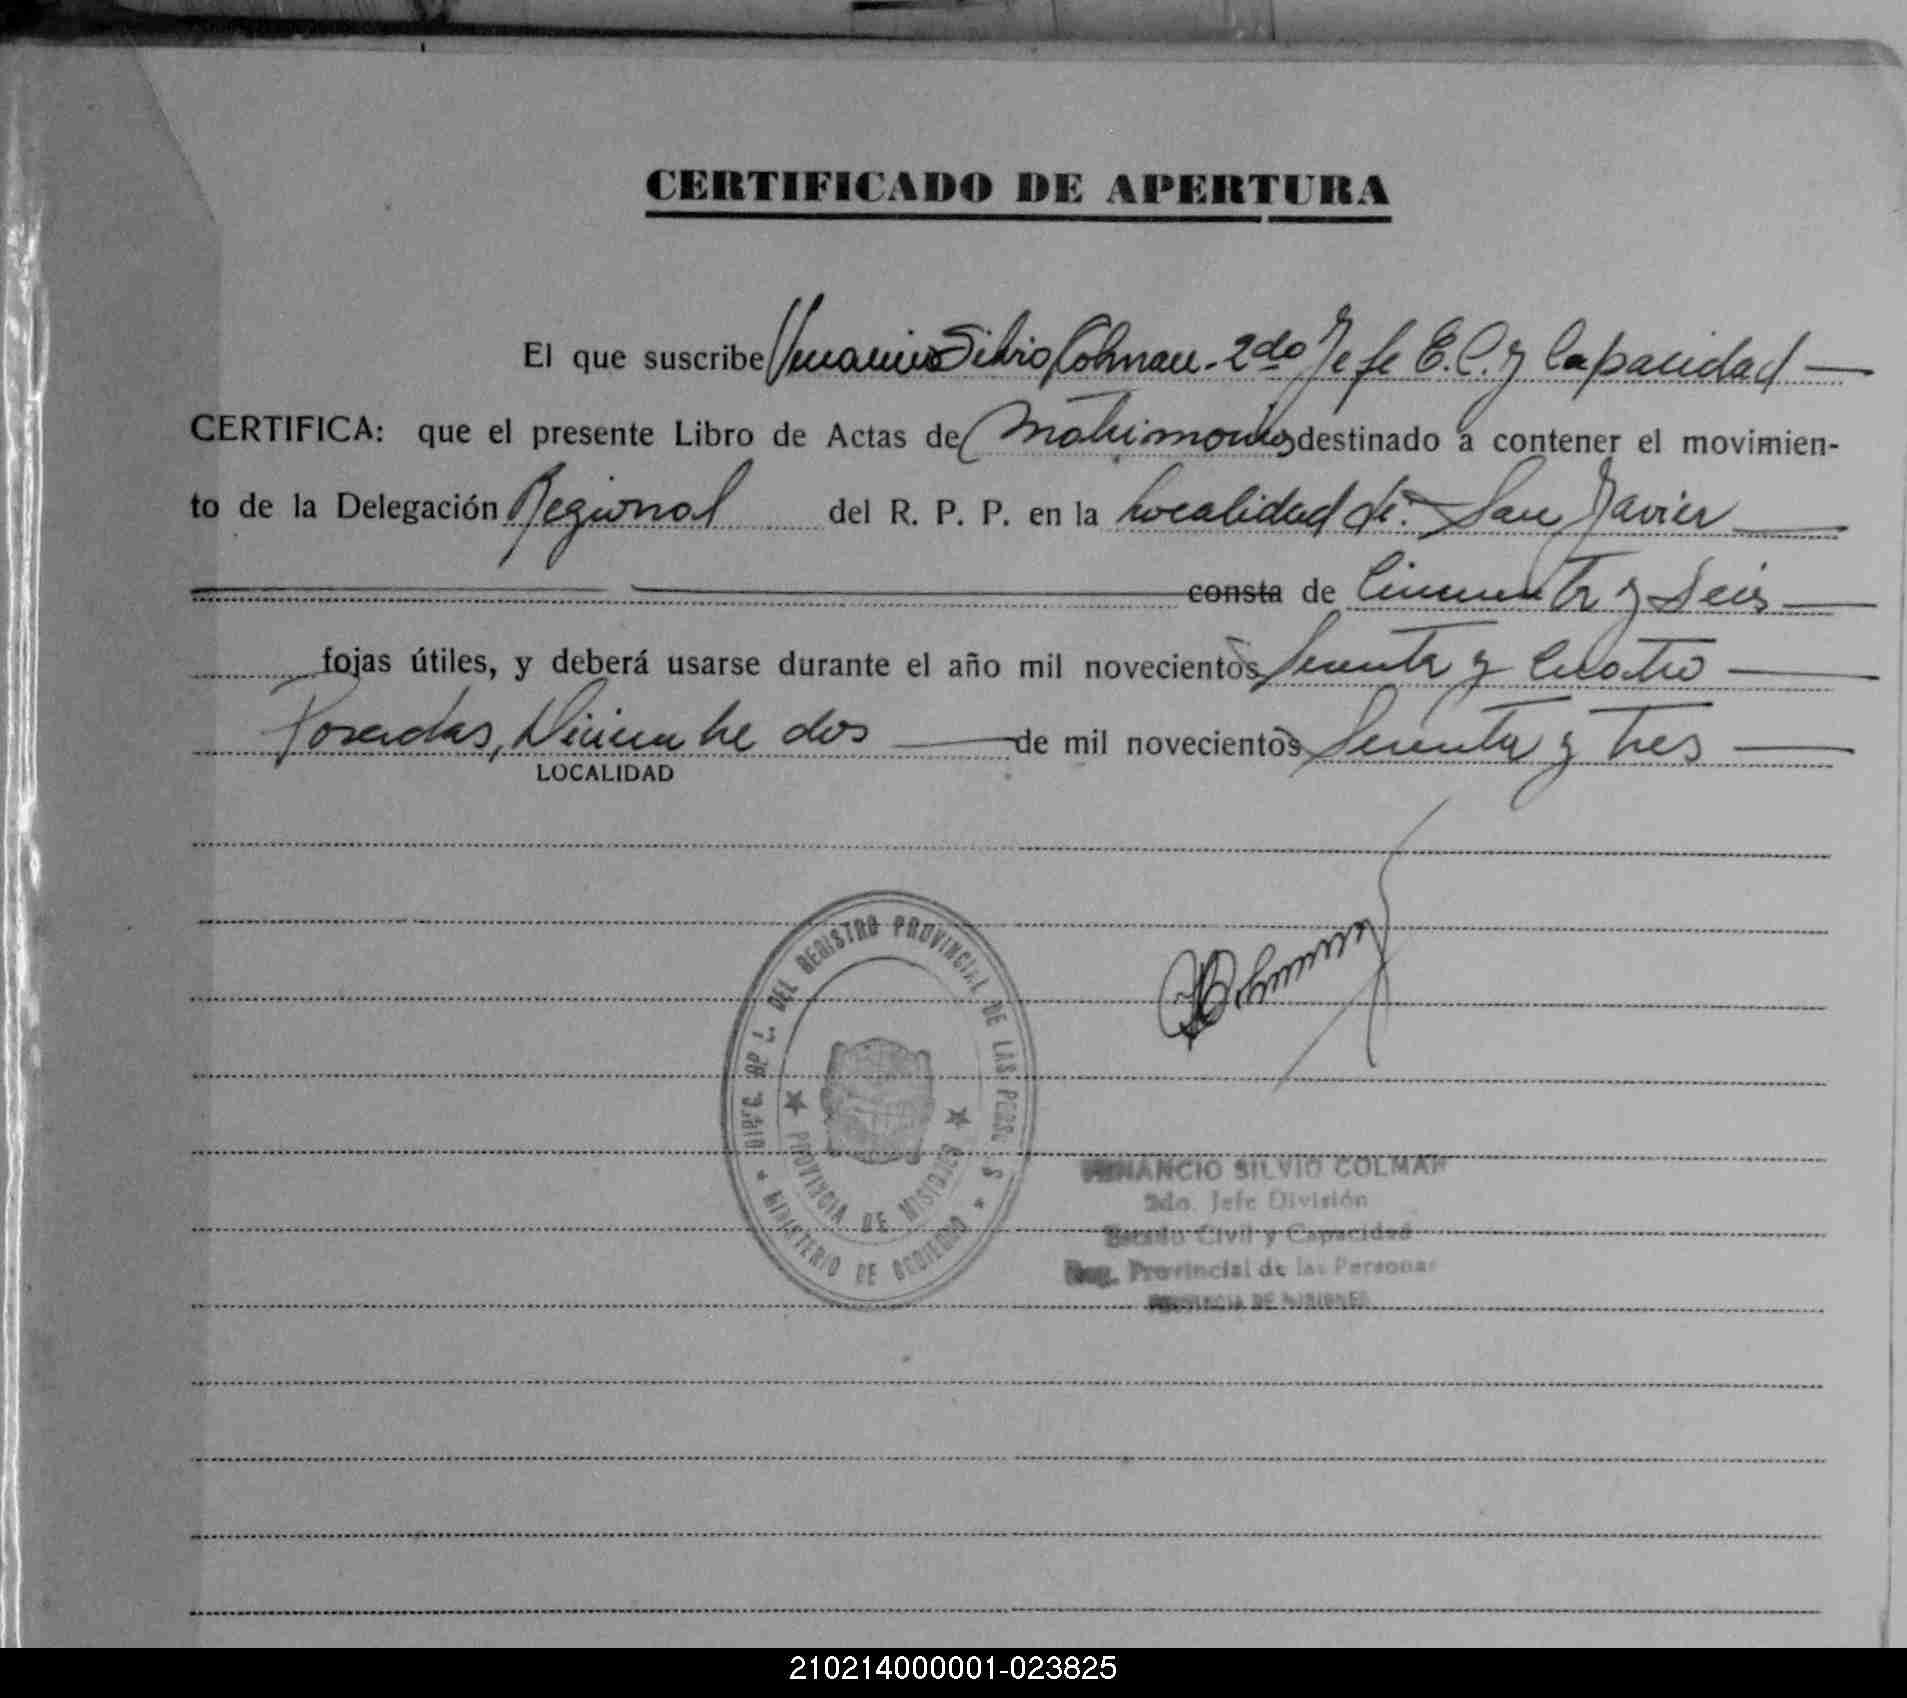 CERTIFICADO DE APERTURA
El que suscribe Venancio Silvio Colman - 2do Jefe E.C. y Capacidad
CERTIFICA: que el presente Libro de Actas de Matrimonios destinado a contener el movimien-
to de la Delegación Regional del R. P. P. en la Localidad de: San Javier
consta de Cincuenta y Seis
fojas útiles, y deberá usarse durante el año mil novecientos Setenta y Cuatro
Posadas, Diciembre dos de mil novecientos Setenta y Tres
LOCALIDAD
DEL REGISTRO PROVINCIAL DE LAS
MINISTERIO DE GOBIERNO
PROVINCIA DE MISIONES
Colman
VENANCIO SILVIO COLMAN
2do. Jefe División
Estado Civil y Capacidad
Reg. Provincial de las Personas
PROVINCIA DE MISIONES
210214000001-023825